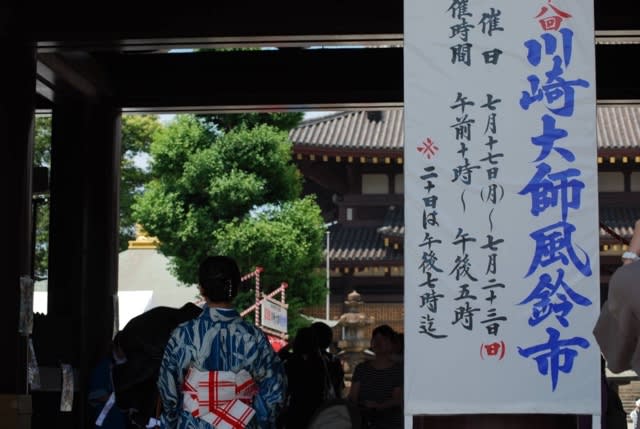 八回
川崎大師風鈴市
催日 七月十七日(月)~七月二十三日(日)
催時間 午前十時~午後五時
※二十日は午後七時迄